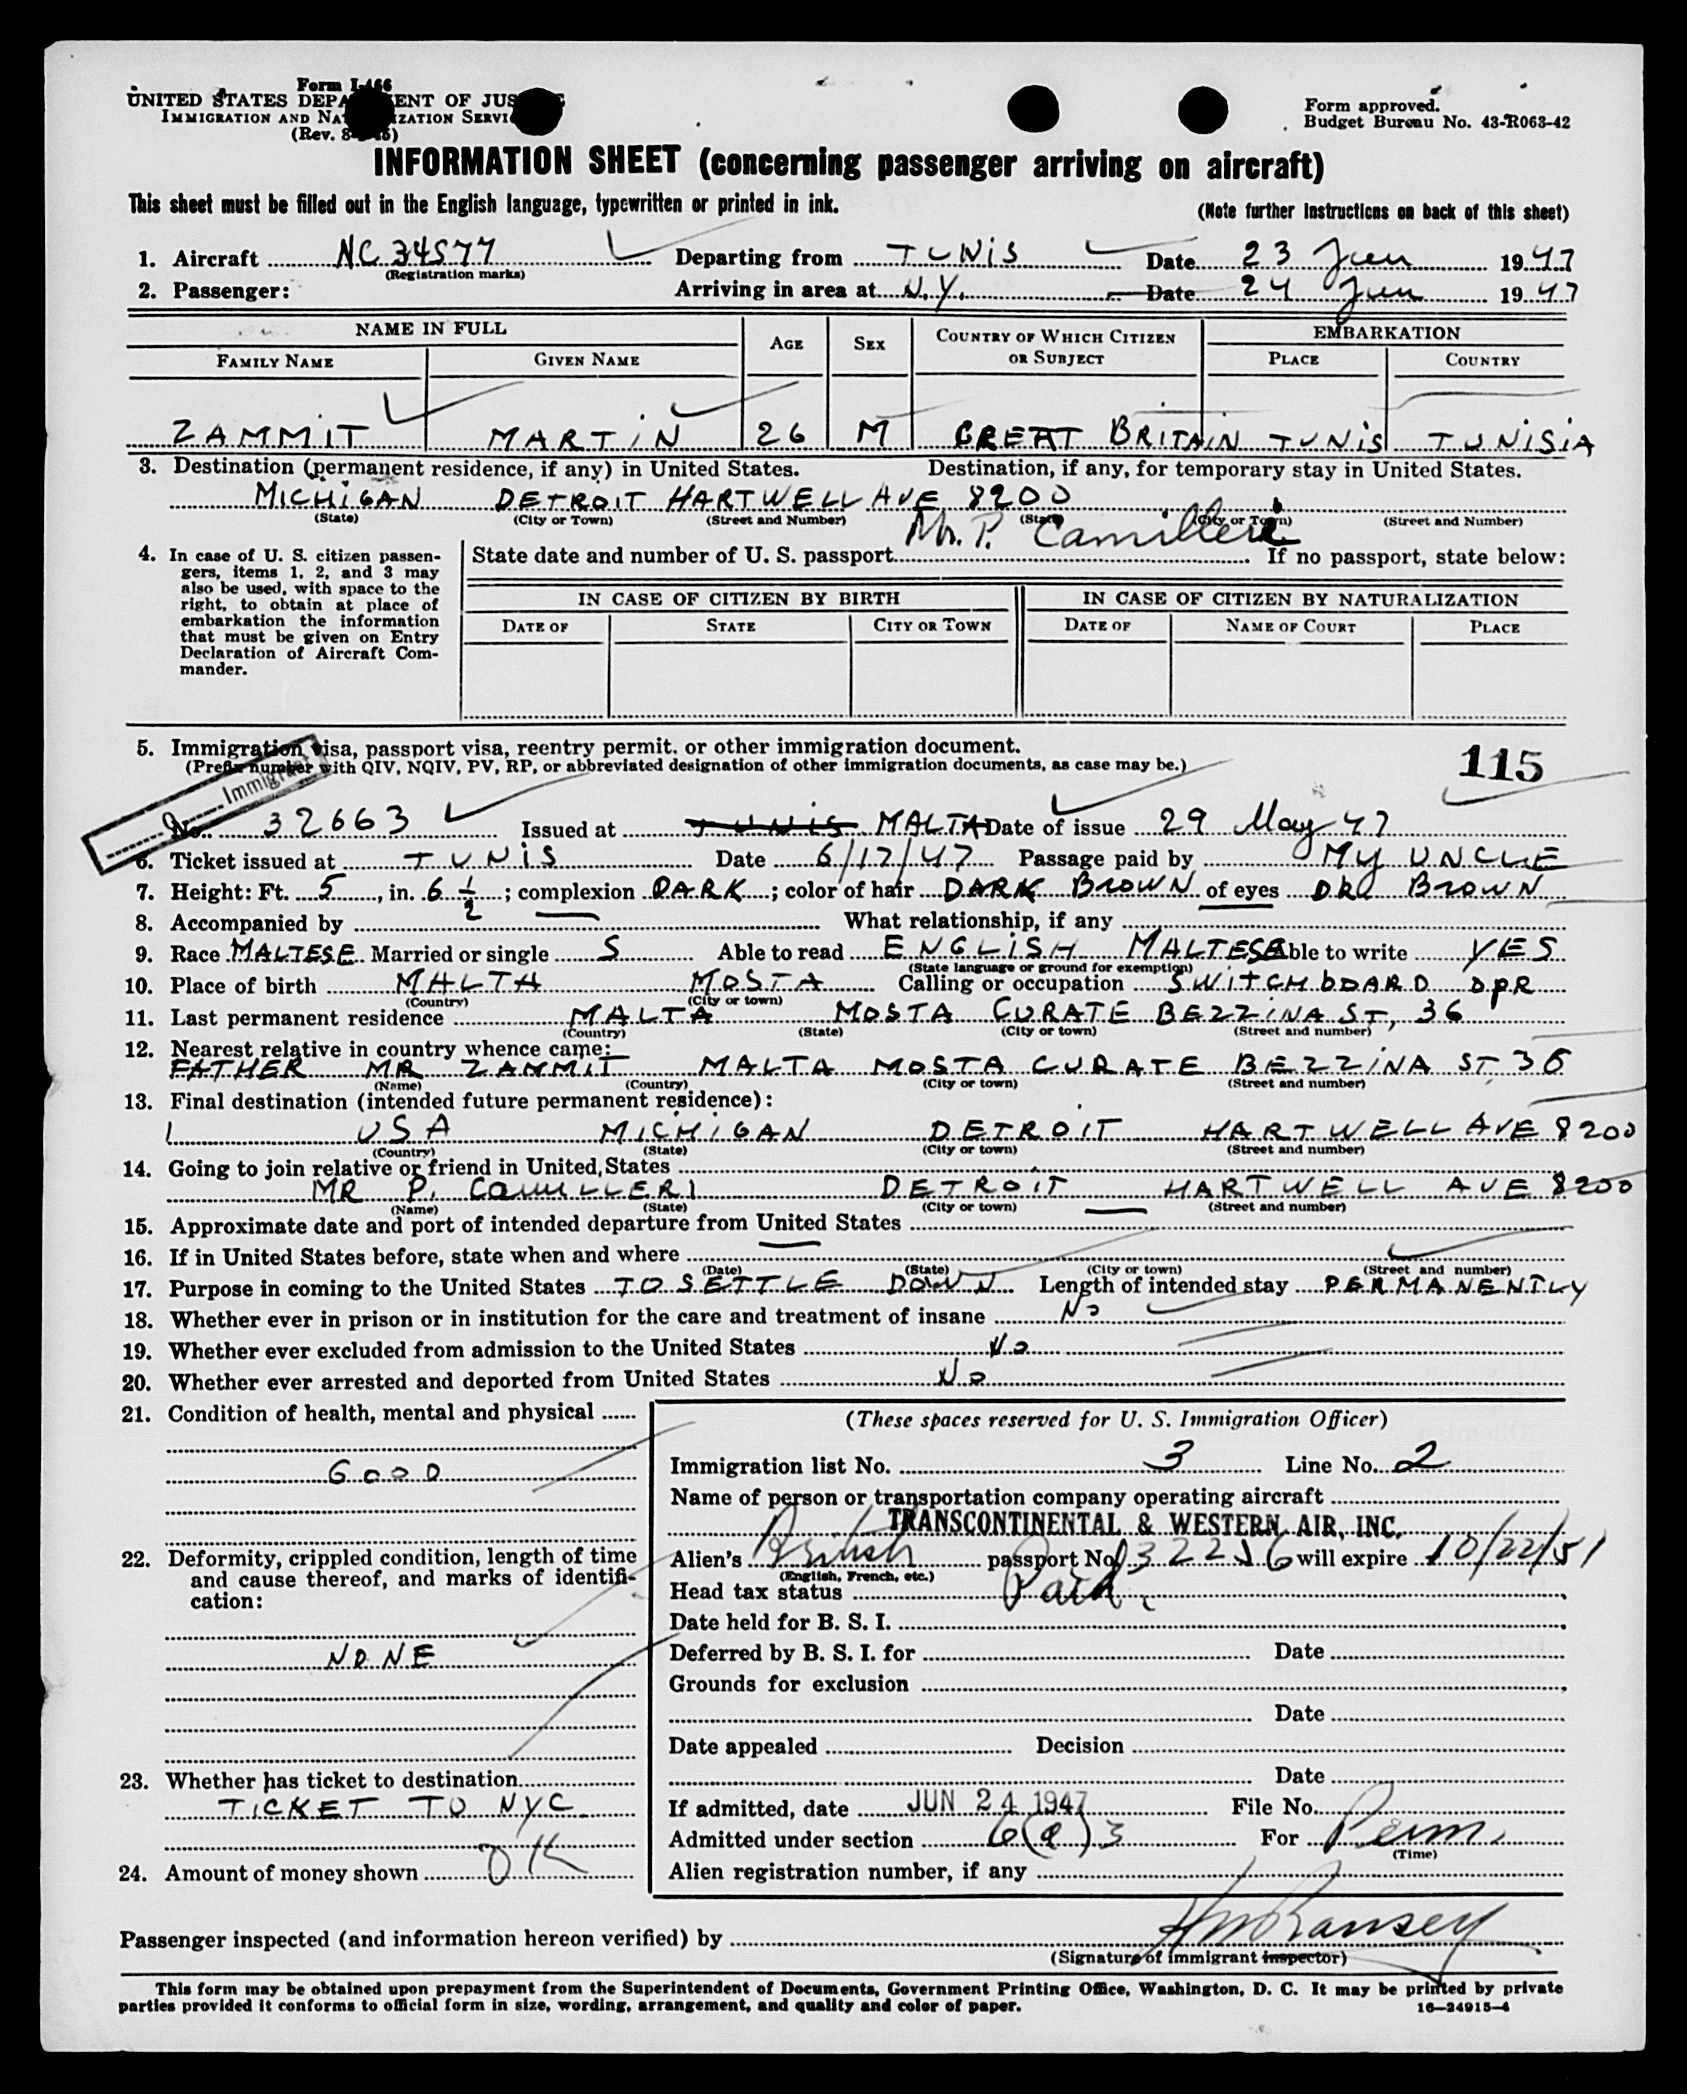 Form I-466
UNITED STATES DEPARTMENT OF JUSTICE
IMMIGRATION AND NATURALIZATION SERVICE
(Rev. 8- -45)
Form approved.
Budget Bureau No. 43-R063-42
INFORMATION SHEET (concerning passenger arriving on aircraft)
This sheet must be filled out in the English language, typewritten or printed in ink.
(Note further instructions on back of this sheet)
1. Aircraft NC 34577 Departing from TUNIS Date 23 Jun 1947
(Registration marks)
2. Passenger: Arriving in area at N.Y. Date 24 Jun 1947
NAME IN FULL AGE SEX COUNTRY OF WHICH CITIZEN OR SUBJECT EMBARKATION
FAMILY NAME GIVEN NAME PLACE COUNTRY
ZAMMIT MARTIN 26 M GREAT BRITAIN TUNIS TUNISIA
3. Destination (permanent residence, if any) in United States. Destination, if any, for temporary stay in United States.
MICHIGAN DETROIT HARTWELL AVE 8200
(State) (City or Town) (Street and Number) (State) (City or Town) (Street and Number)
Mr. P. Camilleri
4. In case of U. S. citizen passengers, items 1, 2, and 3 may also be used, with space to the right, to obtain at place of embarkation the information that must be given on Entry Declaration of Aircraft Commander.
State date and number of U. S. passport If no passport, state below:
IN CASE OF CITIZEN BY BIRTH IN CASE OF CITIZEN BY NATURALIZATION
DATE OF STATE CITY OR TOWN DATE OF NAME OF COURT PLACE
5. Immigration visa, passport visa, reentry permit, or other immigration document.
(Prefix number with QIV, NQIV, PV, RP, or abbreviated designation of other immigration documents, as case may be.)
115
Q Immigrant
No. 32663 Issued at TUNIS MALTA Date of issue 29 May 47
6. Ticket issued at TUNIS Date 6/17/47 Passage paid by MY UNCLE
7. Height: Ft. 5, in. 6 1/2; complexion DARK; color of hair DARK BROWN of eyes DK BROWN
8. Accompanied by What relationship, if any
9. Race MALTESE Married or single S Able to read ENGLISH MALTESE Able to write YES
(State language or ground for exemption)
10. Place of birth MALTA MOSTA Calling or occupation SWITCHBOARD OPR
(Country) (City or town)
11. Last permanent residence MALTA MOSTA CURATE BEZZINA ST, 36
(Country) (State) (City or town) (Street and number)
12. Nearest relative in country whence came:
FATHER MR ZAMMIT MALTA MOSTA CURATE BEZZINA ST 36
(Name) (Country) (City or town) (Street and number)
13. Final destination (intended future permanent residence):
USA MICHIGAN DETROIT HARTWELL AVE 8200
(Country) (State) (City or town) (Street and number)
14. Going to join relative or friend in United States
MR P. CAMILLERI DETROIT HARTWELL AVE 8200
(Name) (State) (City or town) (Street and number)
15. Approximate date and port of intended departure from United States
16. If in United States before, state when and where
(Date) (State) (City or town) (Street and number)
17. Purpose in coming to the United States TO SETTLE DOWN Length of intended stay PERMANENTLY
18. Whether ever in prison or in institution for the care and treatment of insane No
19. Whether ever excluded from admission to the United States No
20. Whether ever arrested and deported from United States No
21. Condition of health, mental and physical
GOOD
22. Deformity, crippled condition, length of time and cause thereof, and marks of identification:
NONE
23. Whether has ticket to destination
TICKET TO NYC
24. Amount of money shown OK
(These spaces reserved for U. S. Immigration Officer)
Immigration list No. 3 Line No. 2
Name of person or transportation company operating aircraft
TRANSCONTINENTAL & WESTERN AIR, INC.
Alien's British passport No. will expire 10/22/51
(English, French, etc.)
Head tax status Paid
Date held for B. S. I.
Deferred by B. S. I. for Date
Grounds for exclusion
Date
Date appealed Decision
Date
If admitted, date JUN 24 1947 File No.
Admitted under section 6(a)3 For Perm.
(Time)
Alien registration number, if any
Passenger inspected (and information hereon verified) by
(Signature of immigrant inspector)
This form may be obtained upon prepayment from the Superintendent of Documents, Government Printing Office, Washington, D. C. It may be printed by private
parties provided it conforms to official form in size, wording, arrangement, and quality and color of paper. 16—24915-4